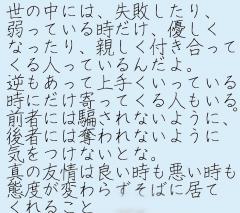 世の中には、失敗したり、
弱っている時だけ、優しく
なったり、親しく付き合って
くる人っているんだよ。
逆もあって上手くいっている
時にだけ寄ってくる人もいる。
前者には騙されないように、
後者には奪われないように
気をつけないとな。
真の友情は良い時も悪い時も
態度が変わらずそばに居て
くれること